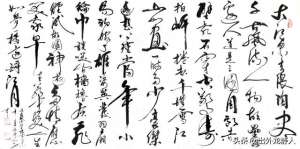 大江东去浪淘尽
千古风流人物故垒
西边人道是三国周郎赤
壁乱石穿空惊涛
拍岸卷起千堆雪江
山如画一时多少豪杰
遥想公瑾当年小
乔初嫁了雄姿英发羽扇
纶巾谈笑间樯橹灰飞
烟灭故国神游多情应
笑我早生华发人生
如梦一尊还酹江月
头条